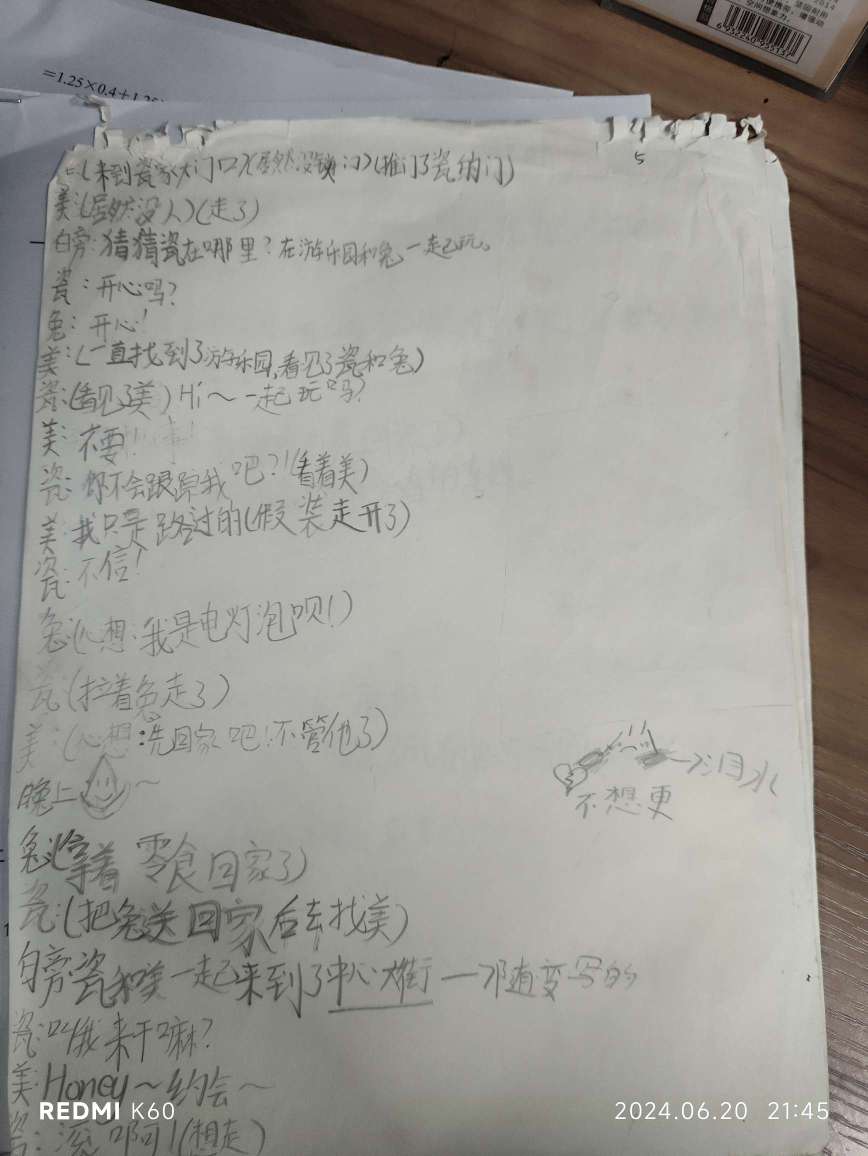 =1.25×0.4+1.25
2014
6932240
5
(来到瓷家大门口)(居然没锁门)(推门了瓷的门)
美:(居然没人)(走了)
白旁:猜猜瓷在哪里?在游乐园和兔一起玩。
瓷:开心吗?
兔:开心!
美:(一直找到了游乐园,看见了瓷和兔)
瓷:(看见了美)Hi~一起玩吗?
美:不要!!
瓷:你不会跟踪我吧?!(看着美)
美:我只是路过的(假装走开了)
瓷:不信!
兔:(心想:我是电灯泡呗!)
瓷(拉着兔走了)
美:(心想:先回家吧!不管他了)
晚上~
泪水
不想更
兔:(拿着零食回家了)
瓷:(把兔送回家后去找美)
白旁瓷和美一起来到了中心大街一随变写的
瓷:叫我来干嘛?
美:Honey~约会~
瓷:滚啊!(想走)
REDMI K60
2024.06.20 21:45